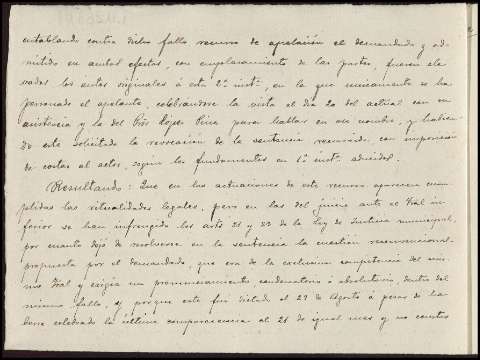 entablando contra dicho fallo recurso de apelación el demandado y ad-
mitido en ambos efectos, con emplazamiento de las partes, fueron ele-
vados los autos originales á esta 2ª instª, en la que unicamente se ha
personado el apelante, celebrandose la vista el dia 20 del actual con su
asistencia y la del Prór Lopez para hablar en su nombre, y habien-
do este solicitado la revocación de la sentencia recurrida, con imposición
de costas al actor, segun los fundamentos en 1ª instª aducidos.
Resultando: Que en las actuaciones de este recurso aparecen cum-
plidas las ritualidades legales, pero en las del juicio ante el Tral in-
ferior se han infringido los arts 21 y 23 de la Ley de Justicia municipal,
por cuanto dejó de resolverse en la sentencia la cuestión reconvencional
propuesta por el demandado, que era de la exclusiva competencia del mis-
mo Tral y exigia un pronunciamiento condenatorio ó absolutorio, dentro del
mismo fallo, y porque este fué dictado el 29 de Agosto á pesar de ha-
berse celebrado la última comparecencia el 26 de igual mes y no constar